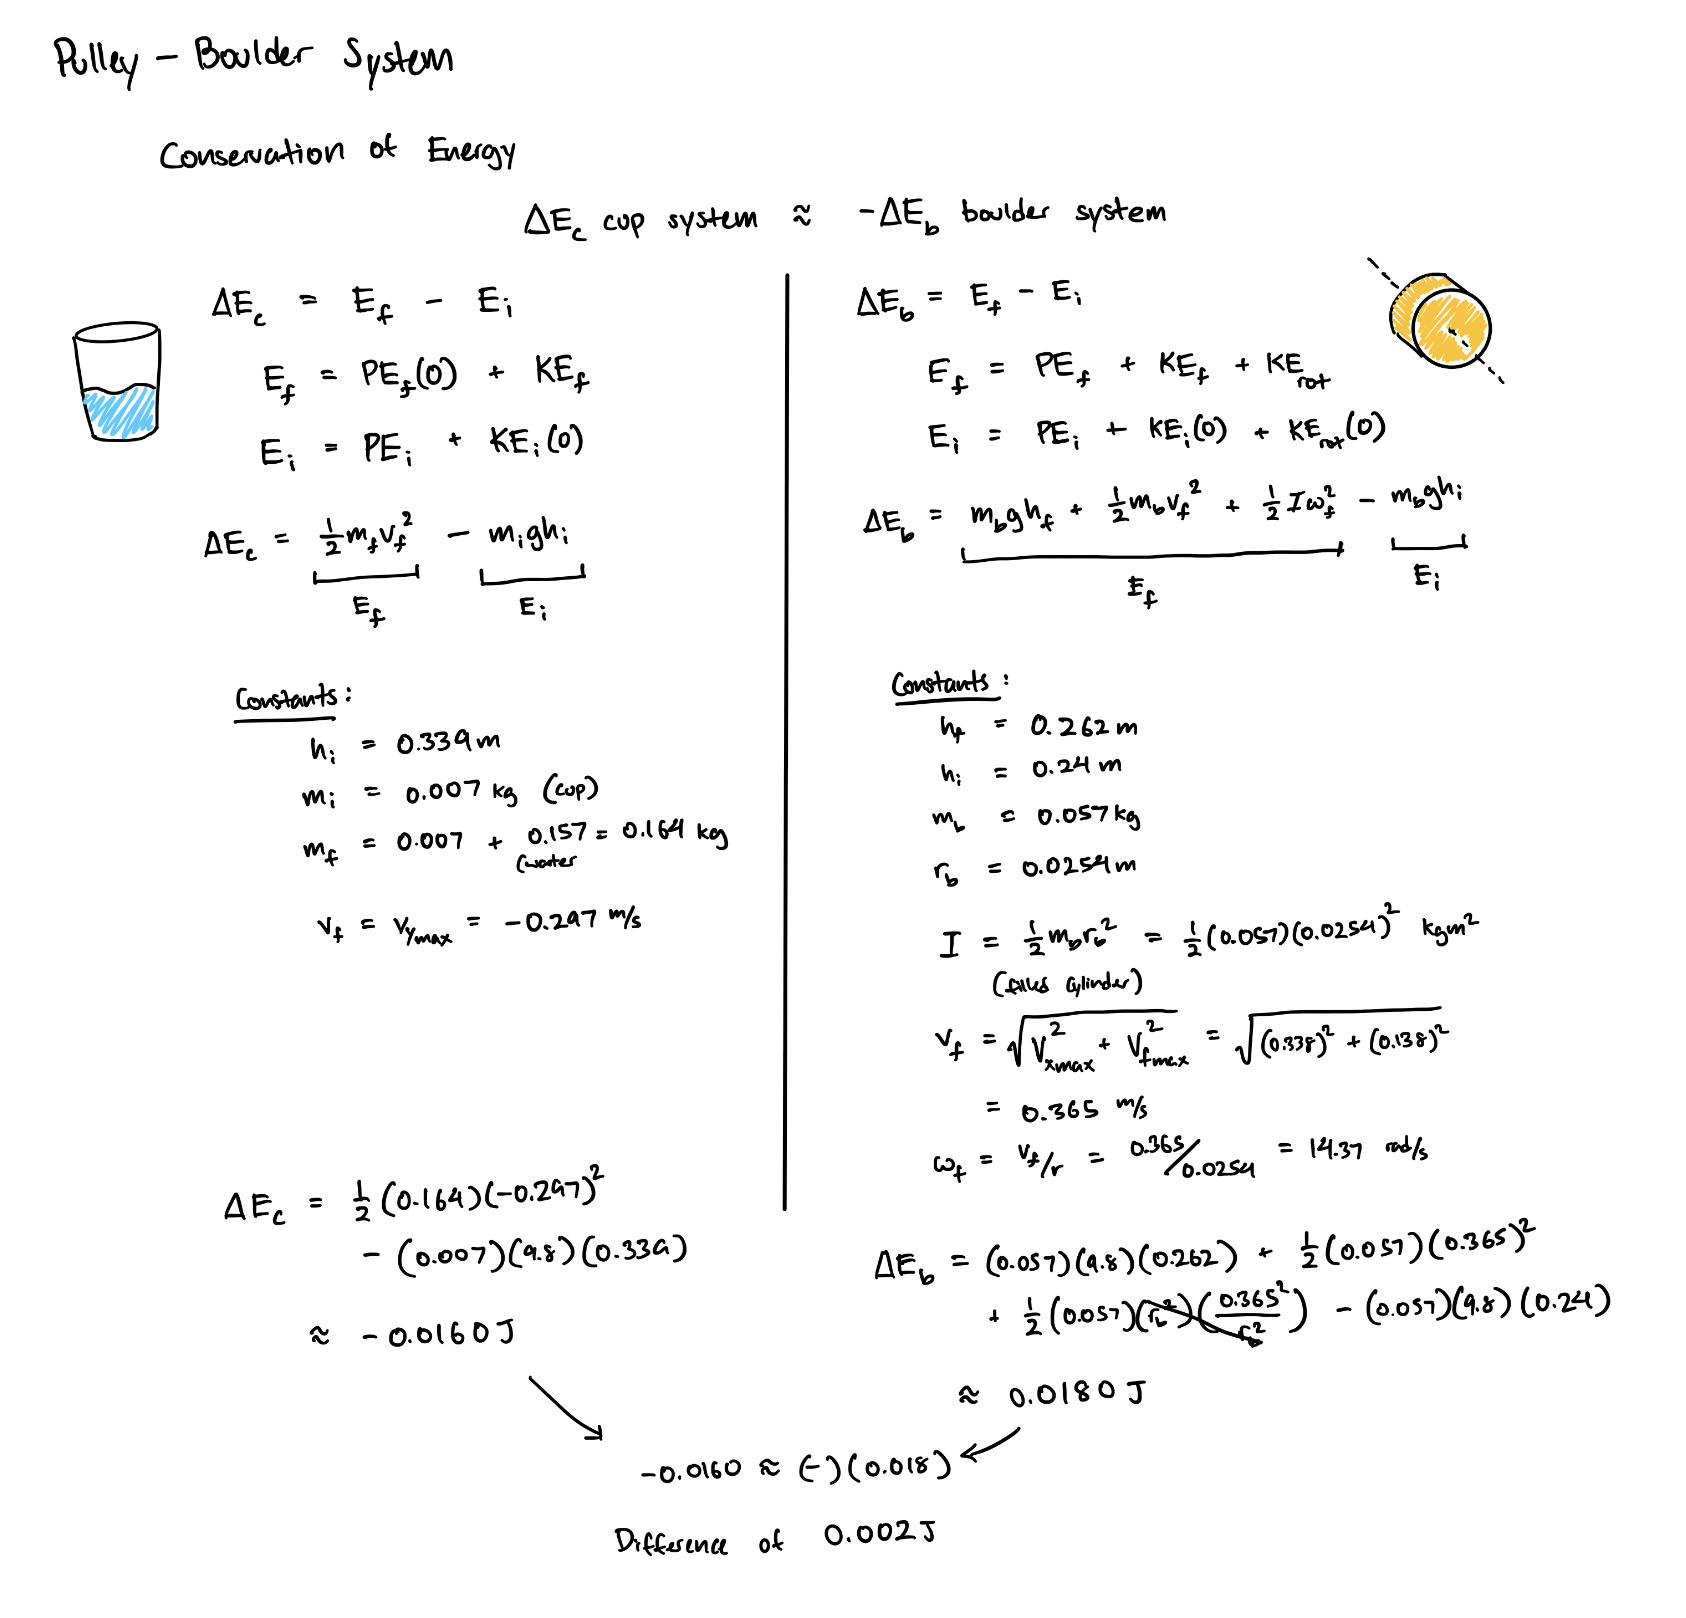 Pulley – Boulder System
Conservation of Energy
ΔE_c cup system ≈ -ΔE_b boulder system
ΔE_c = E_f - E_i
E_f = PE_f(0) + KE_f
E_i = PE_i + KE_i(0)
ΔE_c = 1/2 m_f v_f^2 - m_i g h_i
E_f E_i
Constants:
h_i = 0.339 m
m_i = 0.007 kg (cup)
m_f = 0.007 + 0.157 = 0.164 kg
(water
v_f = v_ymax = -0.297 m/s
ΔE_c = 1/2 (0.164)(-0.297)^2
- (0.007)(9.8)(0.339)
≈ -0.0160 J
ΔE_b = E_f - E_i
E_f = PE_f + KE_f + KE_rot
E_i = PE_i + KE_i(0) + KE_rot(0)
ΔE_b = m_b g h_f + 1/2 m_b v_f^2 + 1/2 I ω_f^2 - m_b g h_i
E_f E_i
Constants:
h_f = 0.262 m
h_i = 0.24 m
m_b = 0.057 kg
r_b = 0.0254 m
I = 1/2 m_b r_b^2 = 1/2 (0.057)(0.0254)^2 kgm^2
(filled cylinder)
v_f = √(V_xmax^2 + V_fmax^2) = √((0.338)^2 + (0.138)^2)
= 0.365 m/s
ω_f = v_f/r = 0.365/0.0254 = 14.37 rad/s
ΔE_b = (0.057)(9.8)(0.262) + 1/2 (0.057)(0.365)^2
+ 1/2 (0.057)(r_b^2)(0.365^2/r_b^2) - (0.057)(9.8)(0.24)
≈ 0.0180 J
-0.0160 ≈ (-)(0.018)
Difference of 0.002 J